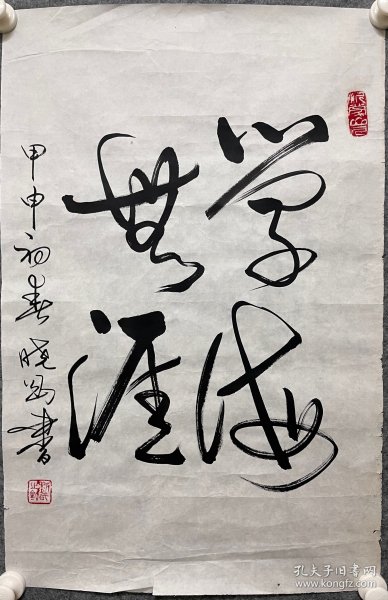 学海
無涯
甲申初春晓
書
孔夫子旧书网
book.kongfz.com